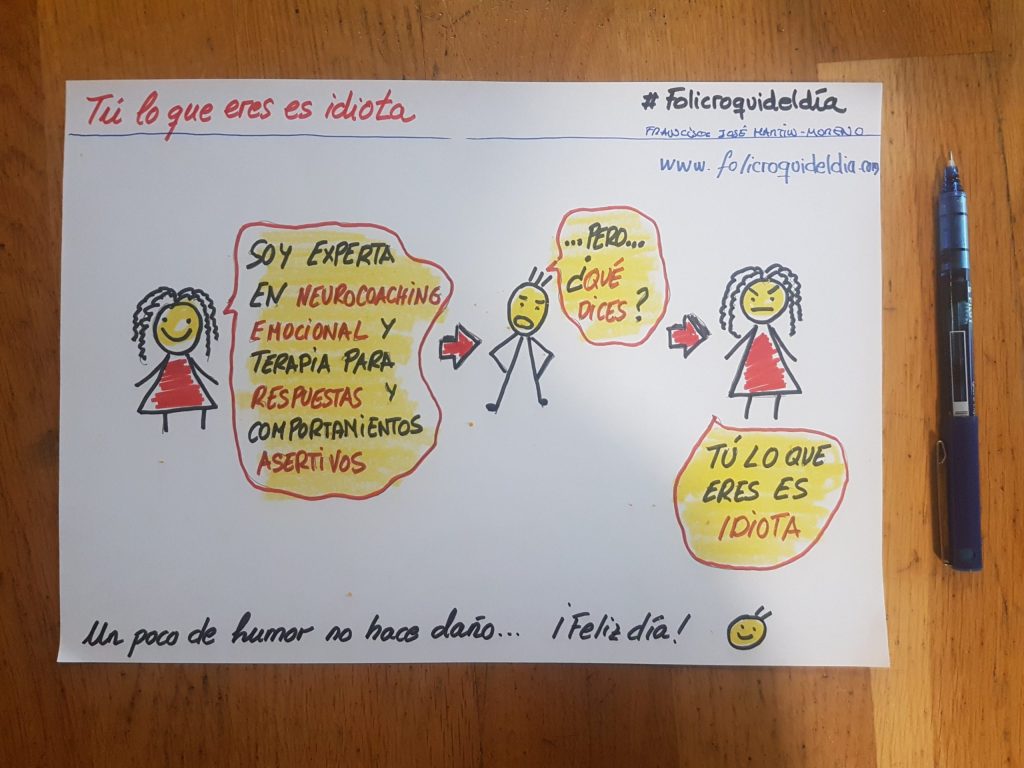 Tú lo que eres es idiota
#Folicroquideldía
FRANCISCO JOSÉ MARTÍN-MORENO
www.folicroquideldia.com
SOY EXPERTA
EN NEUROCOACHING
EMOCIONAL Y
TERAPIA PARA
RESPUESTAS Y
COMPORTANIENTOS
ASERTIVOS
...PERO...
¿QUÉ
DICES?
TÚ LO QUE
ERES ES
IDIOTA
Un poco de humor no hace daño... ¡Feliz día!